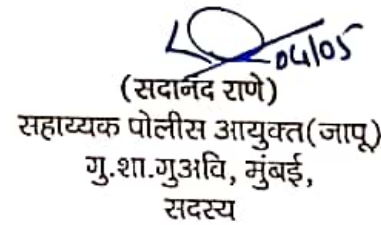 04/05
(सदानंद राणे)
सहाय्यक पोलीस आयुक्त(जापू)
गु.शा.गुअवि, मुंबई,
सदस्य